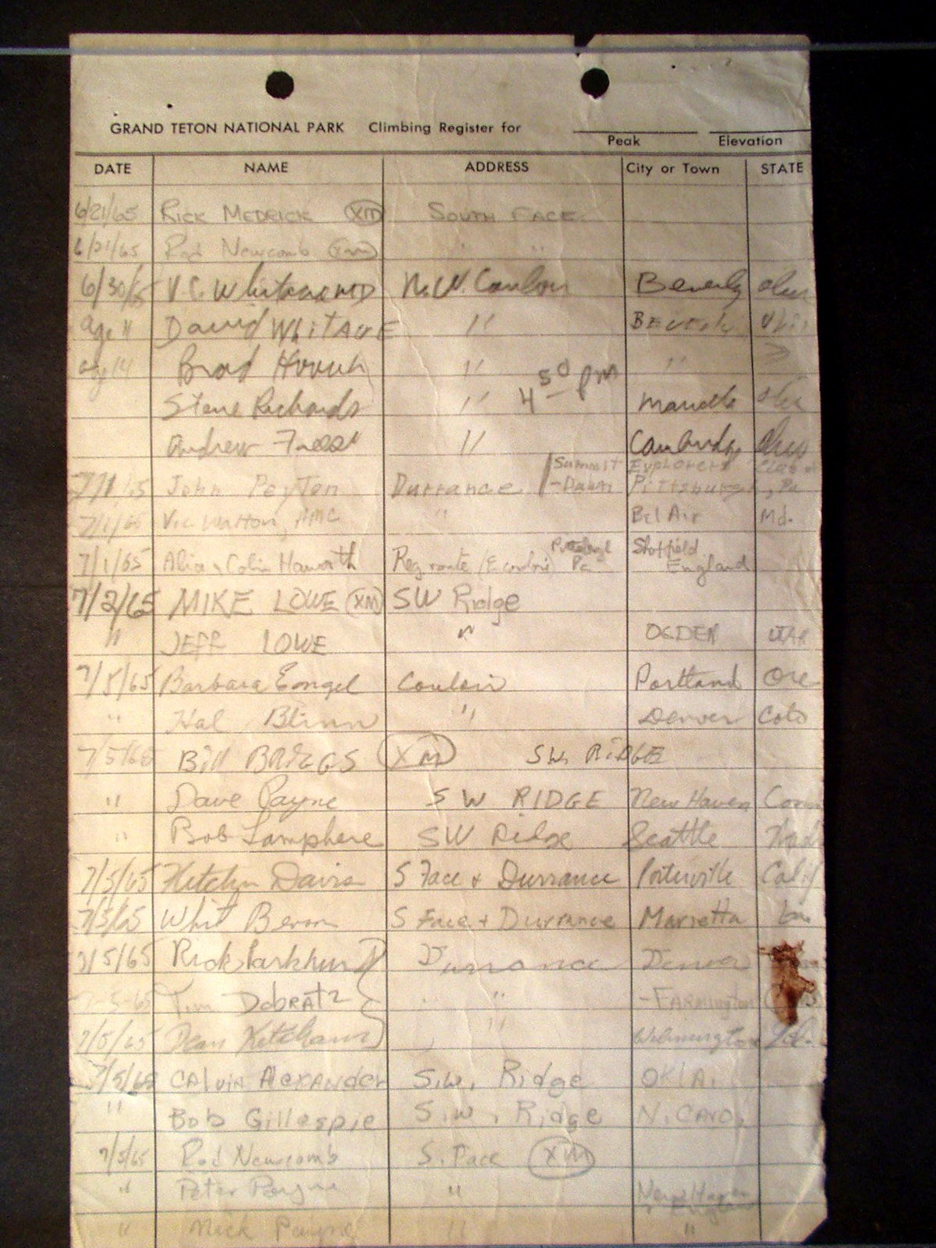 GRAND TETON NATIONAL PARK Climbing Register for
Peak Elevation
DATE NAME ADDRESS City or Town STATE
6/21/65 RICK MEDRICK XM SOUTH FACE
6/21/65 Rod Newcomb XM " "
6/30/65 V.C. N.W. Couloir Beverly ohio
age 11 David WHITACRE " BEVERLY ohio
age 14 Brad " "
4 50 pm
Steve Richards " ohio
Andrew " ohio
Summit Explorers Club of
7/1/65 John Peyton Durrance - Dawn Pittsburgh, Pa
7/1/65 Vic Walton, AMC " Bel Air Md.
7/1/65 Alice & Colin Haworth Reg. route Pa England
7/2/65 MIKE LOWE XM SW Ridge
" JEFF LOWE " OGDEN UTAH
7/5/65 Barbara Engel Couloir Portland Ore
" Hal Blinn " Denver Colo
7/5/65 Bill BRIGGS XM SW. RIDGE
" Dave Payne SW RIDGE New Haven Conn
" Bob Lamphere SW Ridge Seattle Wash
7/5/65 Davis S Face & Durrance Porterville Calif
7/5/65 Whit S Face + Durrance Marietta
7/5/65 Rick Parkhurst Durrance Denver
7-5-65 Tim DobRATZ " " - FARMington
7/5/65 Dean Ketcham " Wilmington
7/5/65 CALVIN ALEXANDER S.W. Ridge OKLA.
" Bob Gillespie S.W. Ridge N. CARO.
7/5/65 Rod Newcomb S. Face XM
" Peter Payne " New Haven
England
" Nick Payne " "